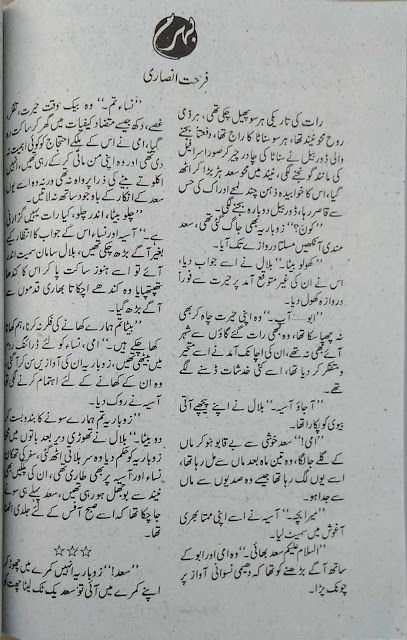 بھرم
فرحت انصاری
رات کی تاریکی ہر سو پھیل چکی تھی، ہر ذی
روح محو نیند تھا، ہر سو سناٹا کا راج تھا، دفعتاً بجنے
والی ڈور بیل نے سناٹا کی چادر چیر کر صور اسرافیل
کی مانند گونجنے لگی، نیند میں محو سعد ہڑبڑا کر اٹھ
گیا، اس کا خوابیدہ ذہن چند لمحے ادراک کی حس
سے قاصر رہا، ڈور بیل دوبارہ بجنے لگی۔
’’کون؟‘‘ زوباریہ بھی جاگ گئی تھی، سعد
مندی آنکھیں مسلتا دروازے تک آیا۔
’’کھولو بیٹا۔‘‘ بلال نے اسے جواب دیا،
اس نے ان کی غیر متوقع آمد پر حیرت سے فوراً
دروازہ کھول دیا۔
’’ابو۔۔۔۔ آپ۔‘‘ وہ اپنی حیرت چاہ کر بھی
نہ چھپا سکا تھا، وہ کبھی رات گئے گاؤں سے شہر
آئے بھی نہ تھے، ان کی اچانک آمد نے اسے متحیر
و متفکر کر دیا تھا، اسے کئی خدشات ڈسنے لگے
تھے۔
’’آ جاؤ آسیہ۔‘‘ بلال نے اپنے پیچھے آتی
بیوی کو پکارا تھا۔
’’امی!‘‘ سعد خوشی سے بے قابو ہو کر ماں
کے گلے جا لگا، وہ تین ماہ بعد ماں سے مل رہا تھا،
اسے یوں لگ رہا تھا جیسے وہ صدیوں سے ماں
سے جدا ہو۔
’’میرا بچہ۔‘‘ آسیہ نے اسے اپنی ممتا بھری
آغوش میں سمیٹ لیا۔
’’السلام علیکم سعد بھائی۔‘‘ وہ امی اور ابو کے
ساتھ آگے بڑھنے کو تھا کہ دھیمی نسوانی آواز پر
چونک پڑا۔
’’نساء تم۔‘‘ وہ بیک وقت حیرت، تفکر،
غصے، دکھ جیسے متضاد کیفیات میں گھر کر ساکت رہ
گیا، امی نے اس کے ہلکے احتجاج کو کوئی اہمیت نہ
دی تھی اور وہ اپنی من مانی کر کے رہی تھیں، انہیں
اکلوتے بیٹے کی ذرا پرواہ نہ تھی ورنہ وہ اسے یوں
اس کے انکار کے باوجود ساتھ نہ لاتیں۔
’’چلو بیٹا، اندر چلو، کیا رات یہیں گزارنی
ہے۔‘‘ آسیہ اور نساء اس کے جواب کا انتظار کیے
بغیر آگے بڑھ چکی تھیں، بلال سامان سمیت اندر
آئے تو اسے ہنوز ساکت پا کر اس کا کندھا
تھپتھپایا وہ کندھے اچکاتا بھاری قدموں سے
آگے بڑھ گیا۔
’’بیٹا تم ہمارے کھانے کی فکر نہ کرنا، ہم کھانا
کھا چکے ہیں۔‘‘ امی، نساء کو لئے ڈرائنگ روم
میں بیٹھی تھیں، زوباریہ ان کی آوازیں سن کر آ گئی
وہ ان کے کھانے کے لئے اہتمام کرنے لگی تو
آسیہ نے روک دیا۔
’’زوباریہ تم ہمارے سونے کا بندوبست کر
دو بیٹا۔‘‘ بلال نے تھوڑی دیر بعد باتوں میں محو
زوباریہ کو حکم دیا وہ سر ہلاتی اٹھ گئی، سفر کی تھکان
نساء اور آسیہ پر بھی طاری تھی، ان کی پلکیں بھی
نیند سے بوجھل ہو رہی تھیں، سعد پہلے ہی سونے
جا چکا تھا کہ اسے صبح آفس کے لئے جلدی اٹھنا
تھا۔
☆☆☆
’’سعد!‘‘ زوباریہ انہیں کمرے میں چھوڑ کر
اپنے کمرے میں آئی تو سعد یک ٹک لیٹا چھت کو